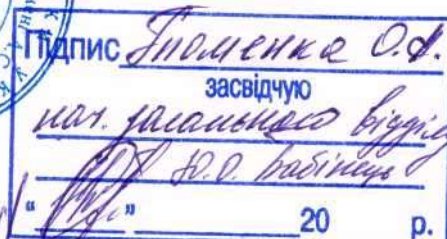 Підпис Гноменка О.
засвідчую
нач. загального відділу
Ю.О. Бабінець
"    "    20    р.